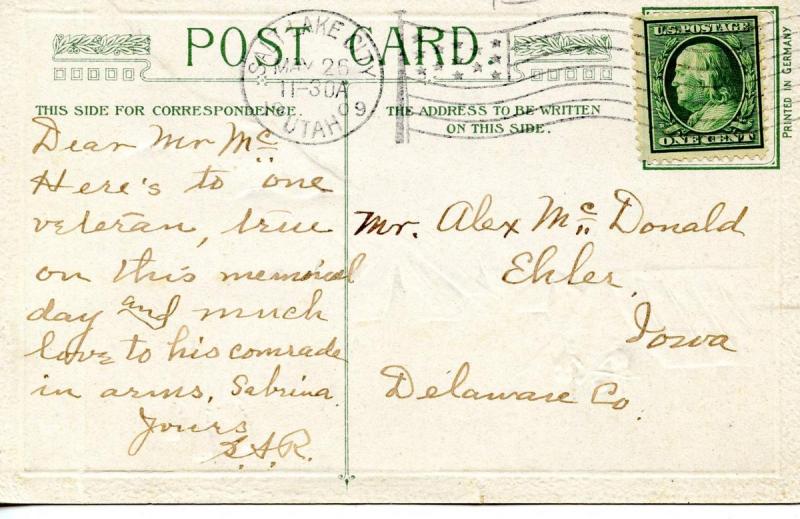 POST CARD
SALT LAKE CITY
MAY 26
11-30A
09
UTAH
U.S. POSTAGE
ONE CENT
PRINTED IN GERMANY
THIS SIDE FOR CORRESPONDENCE
THE ADDRESS TO BE WRITTEN
ON THIS SIDE.
Dear Mr Mc
Here's to "one
veteran, true
on this memorial
day and much
love to his comrade
in arms, Sabrina.
Yours
S.A.R.
Mr. Alex Mc Donald
Ehler,
Iowa
Delaware Co.